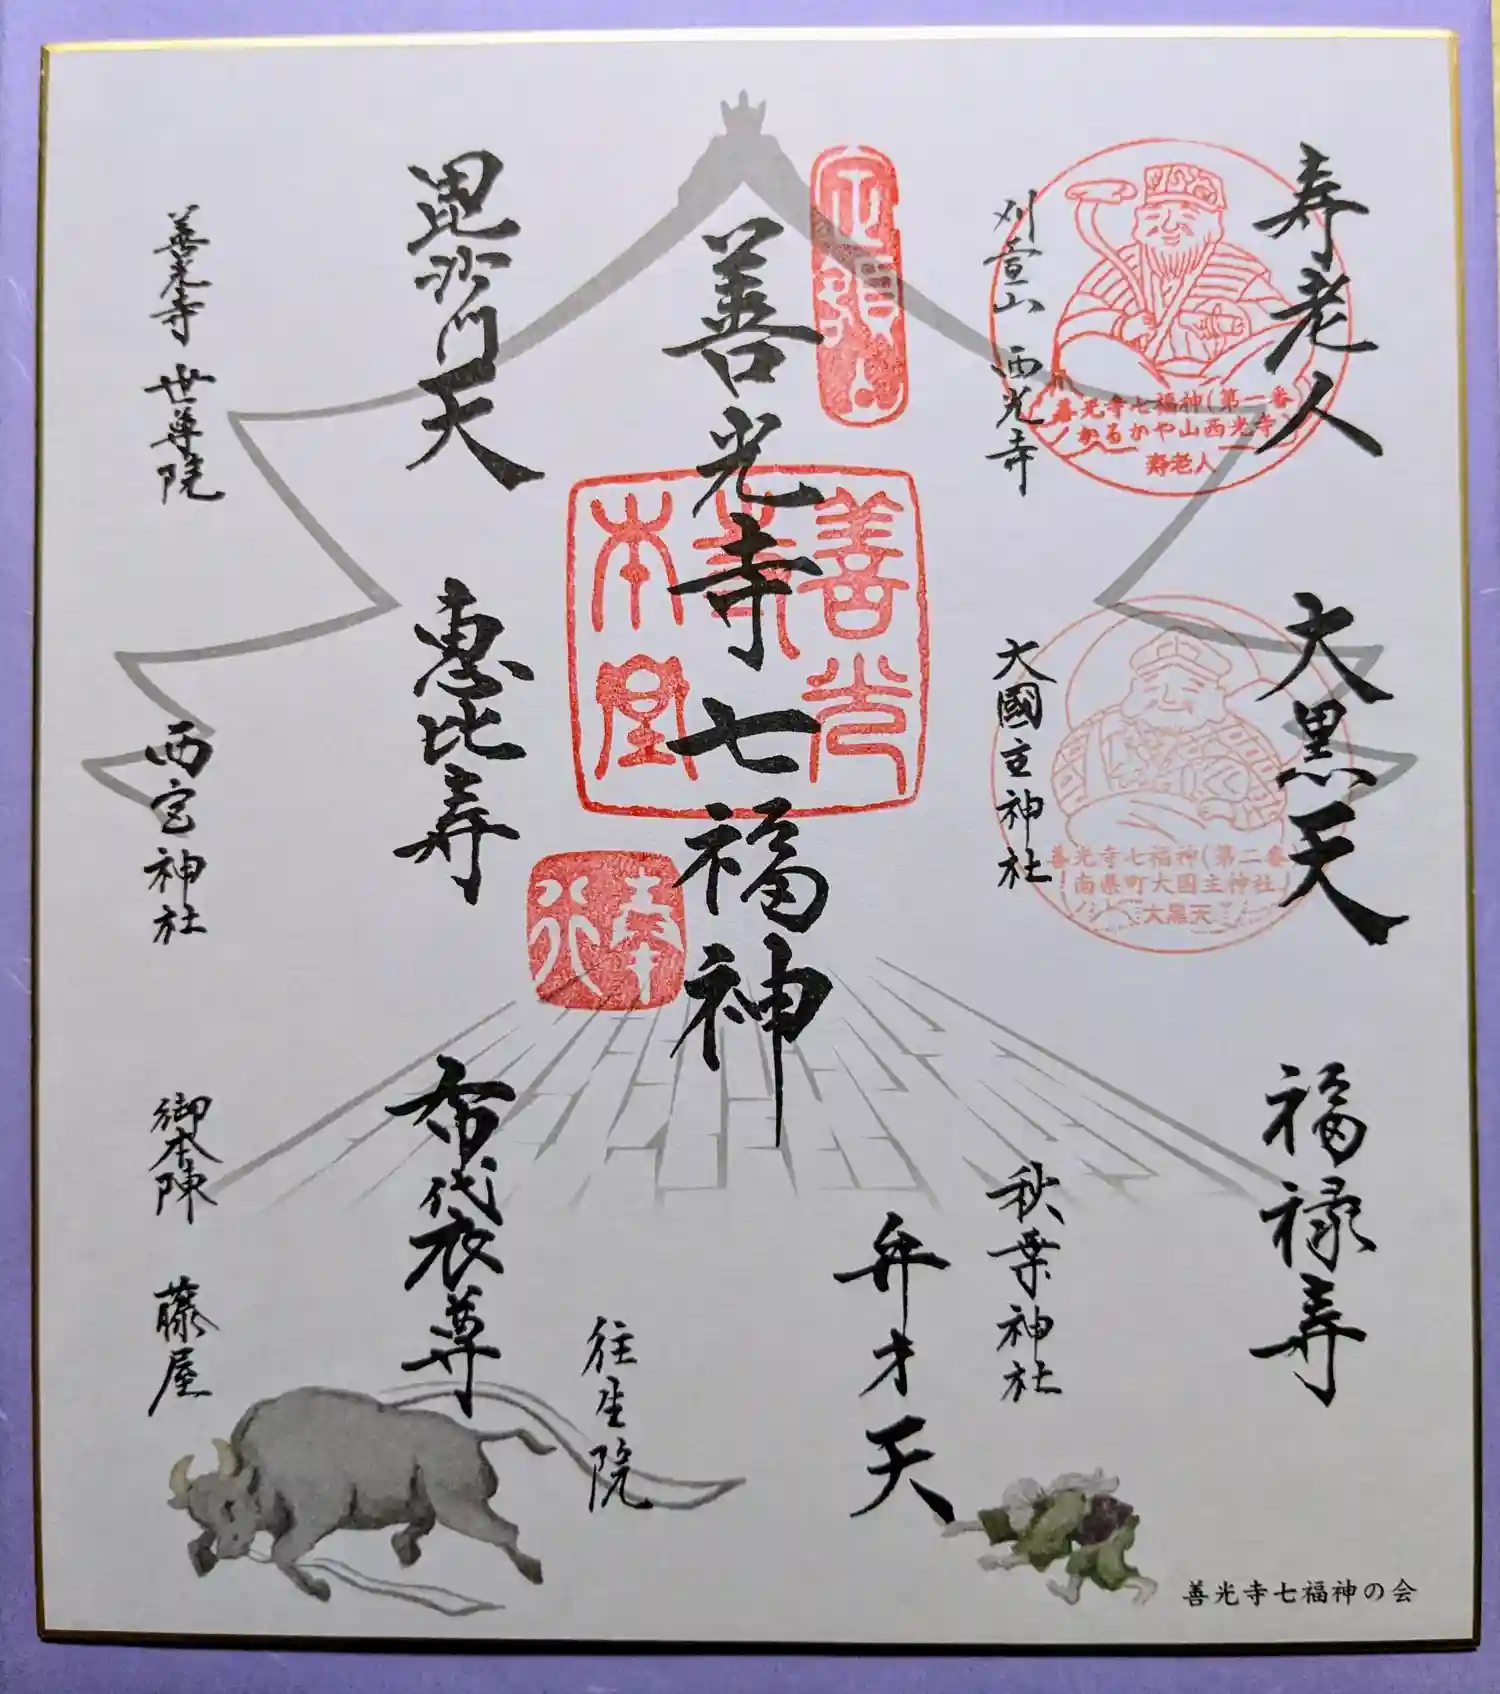 寿老人
刈萱山 西光寺
善光寺七福神(第一番)
かるかや山西光寺
寿老人
大黒天
大國主神社
善光寺七福神(第二番)
南県町大国主神社
大黒天
福禄寿
秋葉神社
弁才天
往生院
善光寺七福神
善光寺本堂
奉行
毘沙門天
善光寺 世尊院
恵比寿
西宮神社
布袋尊
御本陳 藤屋
善光寺七福神の会